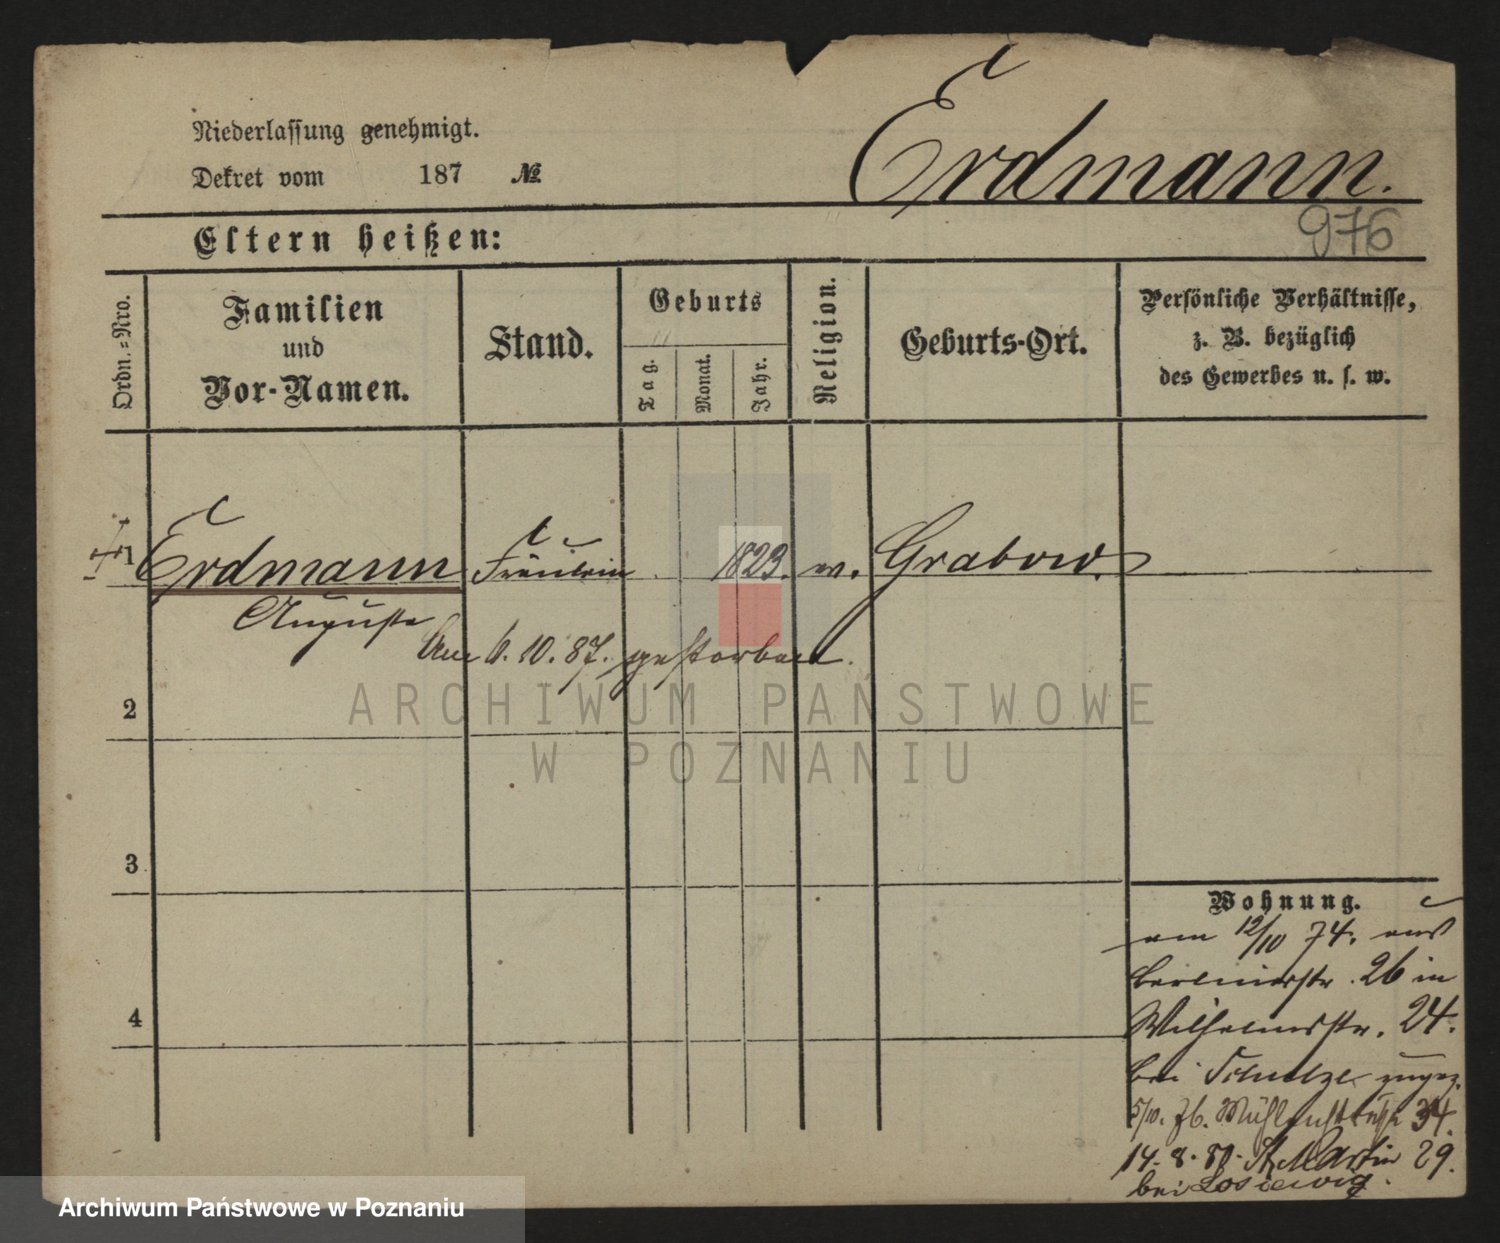 Niederlassung genehmigt.
Dekret vom 187 №
Erdmann.
976
Eltern heißen:
Ordn.-Nro.
Familien
und
Vor-Namen.
Stand.
Geburts
Tag.
Monat.
Jahr.
Religion.
Geburts-Ort.
Persönliche Verhältnisse,
z. B. bezüglich
des Gewerbes u. s. w.
1 Erdmann Fräulein 1823. ev. Grabow.
Auguste
Am 6. 10. 87. gestorben.
2
ARCHIWUM PAŃSTWOWE
W POZNANIU
3
4
Wohnung.
am 12/10 74. aus
Berlinerstr. 26 in
Wilhelmsstr. 24.
bei Schulze zugez.
5/10. 76. Mühlenstraße 34.
14. 8. St. Martin 29.
bei
Archiwum Państwowe w Poznaniu